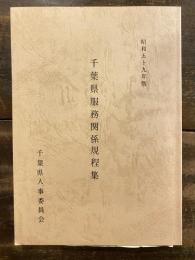 昭和五十九年版
千葉県服務関係規程集
千葉県人事委員会